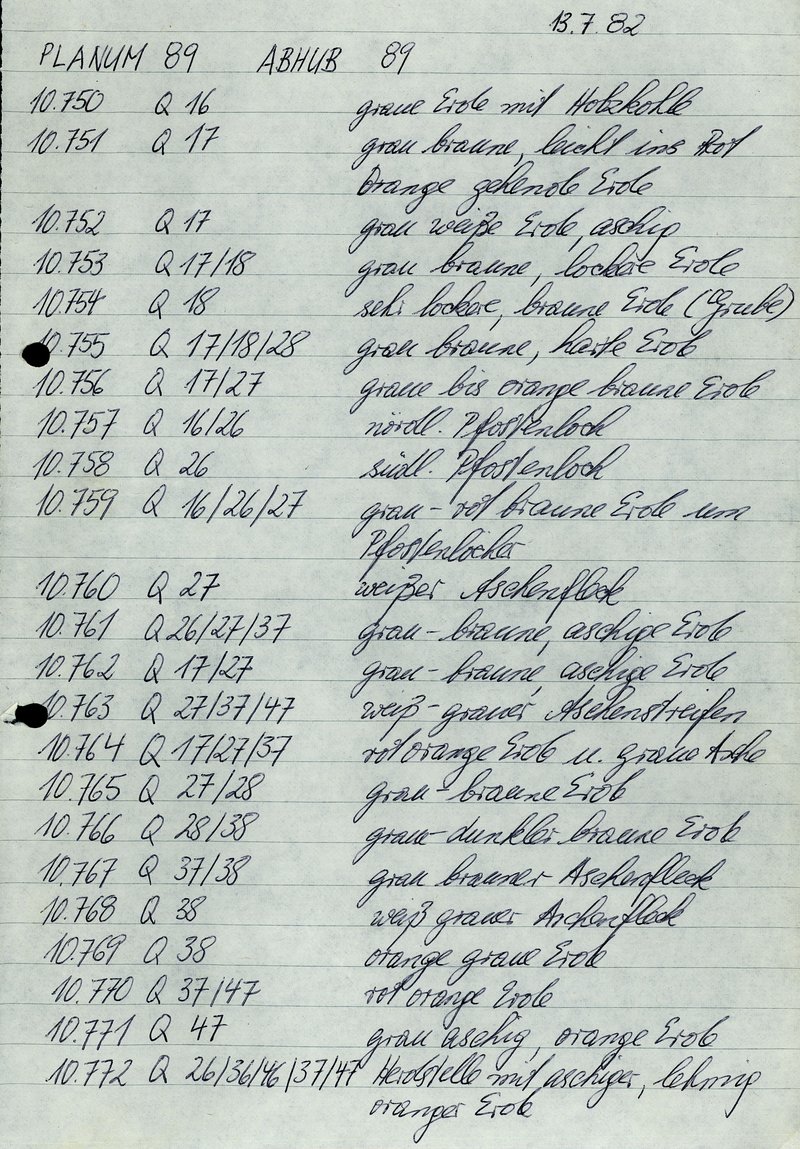 13.7.82
PLANUM 89 ABHUB 89
10.750 Q 16 graue Erde mit Holzkohle
10.751 Q 17 grau braune, leicht ins Rot
Orange gehende Erde
10.752 Q 17 grau weiße Erde, aschig
10.753 Q 17/18 grau braune, lockere Erde
10.754 Q 18 sehr lockere, braune Erde (Grube)
10.755 Q 17/18/28 grau braune, harte Erde
10.756 Q 17/27 graue bis orange braune Erde
10.757 Q 16/26 nördl. Pfostenloch
10.758 Q 26 südl. Pfostenloch
10.759 Q 16/26/27 grau-rot braune Erde um
Pfostenlöcher
10.760 Q 27 weißer Aschenfleck
10.761 Q 26/27/37 grau-braune, aschige Erde
10.762 Q 17/27 grau-braune, aschige Erde
10.763 Q 27/37/47 weiß-grauer Aschenstreifen
10.764 Q 17/27/37 rot orange Erde u. graue Asche
10.765 Q 27/28 grau-braune Erde
10.766 Q 28/38 grau-dunkler braune Erde
10.767 Q 37/38 grau brauner Aschenfleck
10.768 Q 38 weiß grauer Aschenfleck
10.769 Q 38 orange graue Erde
10.770 Q 37/47 rot orange Erde
10.771 Q 47 grau aschig, orange Erde
10.772 Q 26/36/46/37/47 Herdstelle mit aschiger, lehmig
oranger Erde